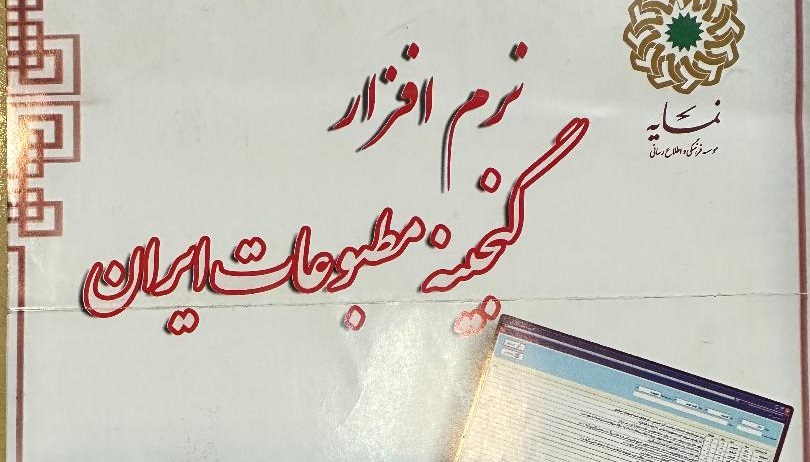 نمایه
موسسه فرهنگی و اطلاع رسانی
نرم افزار
گنجینه مطبوعات ایران